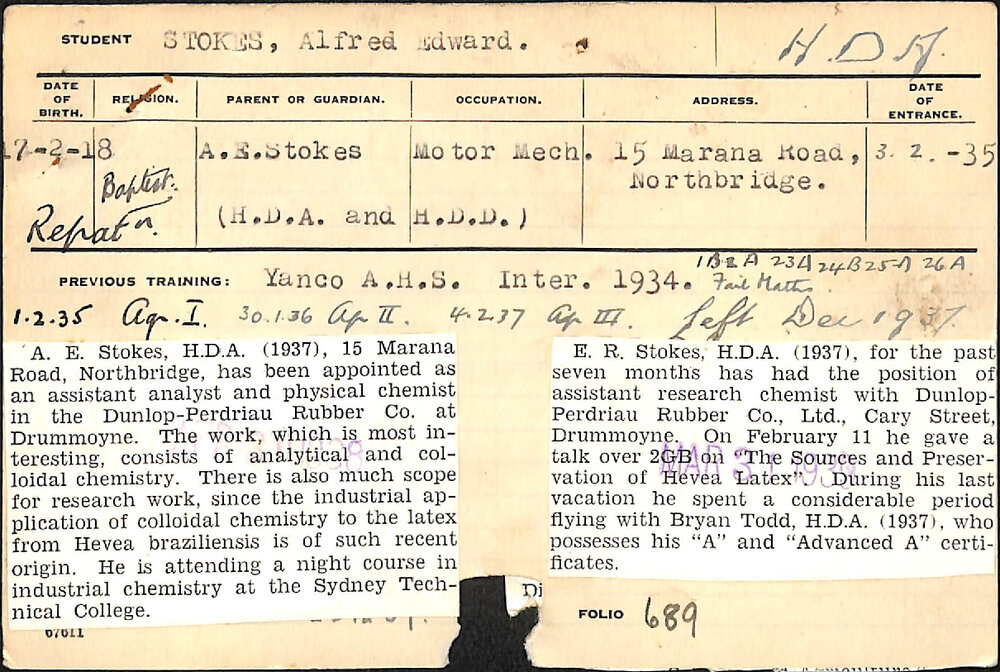 STUDENT STOKES, Alfred Edward. H.D.A.
DATE OF BIRTH. RELIGION. PARENT OR GUARDIAN. OCCUPATION. ADDRESS. DATE OF ENTRANCE.
17-2-18 A.E.Stokes Motor Mech. 15 Marana Road, 3. 2. -35
Baptist. Northbridge.
Repat n. (H.D.A. and H.D.D.)
1B2A 23A 24B 25A 26A
PREVIOUS TRAINING: Yanco A.H.S. Inter. 1934. Fail Maths.
1.2.35 Ag. I. 30.1.36 Ag II. 4.2.37 Ag III. Left Dec 1937.
A. E. Stokes, H.D.A. (1937), 15 Marana
Road, Northbridge, has been appointed as
an assistant analyst and physical chemist
in the Dunlop-Perdriau Rubber Co. at
Drummoyne. The work, which is most in-
teresting, consists of analytical and col-
loidal chemistry. There is also much scope
for research work, since the industrial ap-
plication of colloidal chemistry to the latex
from Hevea braziliensis is of such recent
origin. He is attending a night course in
industrial chemistry at the Sydney Tech-
nical College.
E. R. Stokes, H.D.A. (1937), for the past
seven months has had the position of
assistant research chemist with Dunlop-
Perdriau Rubber Co., Ltd., Cary Street,
Drummoyne. On February 11 he gave a
talk over 2GB on "The Sources and Preser-
vation of Hevea Latex". During his last
vacation he spent a considerable period
flying with Bryan Todd, H.D.A. (1937), who
possesses his "A" and "Advanced A" certi-
ficates.
MAR 31 1939
Di
FOLIO 689
67611